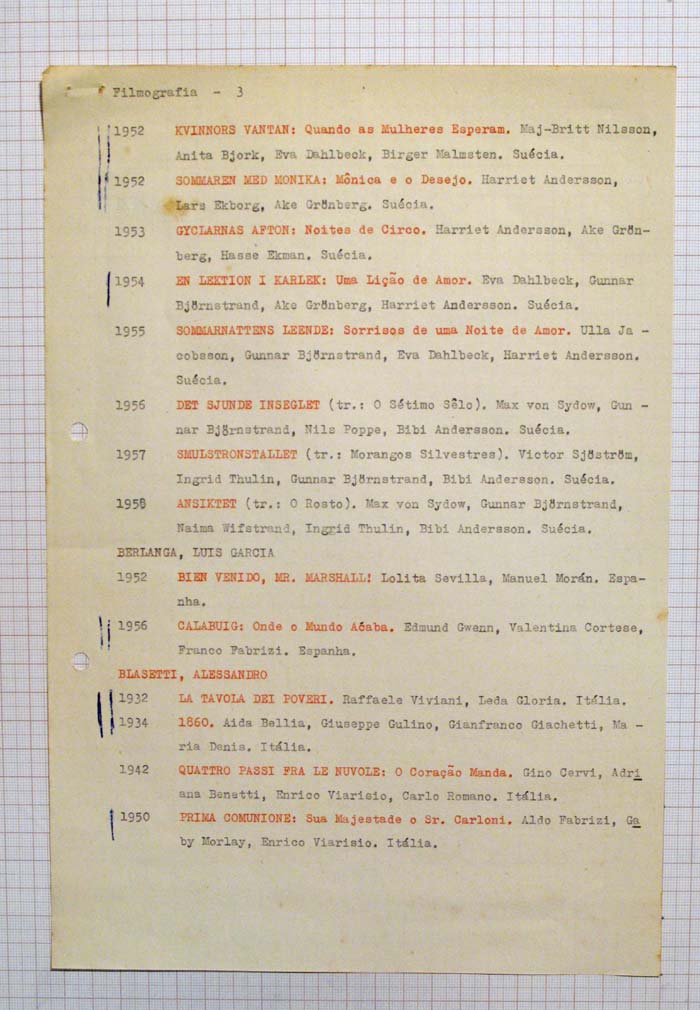 Filmografia - 3
1952 KVINNORS VANTAN: Quando as Mulheres Esperam. Maj-Britt Nilsson,
Anita Bjork, Eva Dahlbeck, Birger Malmsten. Suécia.
1952 SOMMAREN MED MONIKA: Mônica e o Desejo. Harriet Andersson,
Lars Ekborg, Ake Grönberg. Suécia.
1953 GYCLARNAS AFTON: Noites de Circo. Harriet Andersson, Ake Grön-
berg, Hasse Ekman. Suécia.
1954 EN LEKTION I KARLEK: Uma Lição de Amor. Eva Dahlbeck, Gunnar
Björnstrand, Ake Grönberg, Harriet Andersson. Suécia.
1955 SOMMARNATTENS LEENDE: Sorrisos de uma Noite de Amor. Ulla Ja -
cobsson, Gunnar Björnstrand, Eva Dahlbeck, Harriet Andersson.
Suécia.
1956 DET SJUNDE INSEGLET (tr.: O Sétimo Sêlo). Max von Sydow, Gun -
nar Björnstrand, Nils Poppe, Bibi Andersson. Suécia.
1957 SMULSTRONSTALLET (tr.: Morangos Silvestres). Victor Sjöström,
Ingrid Thulin, Gunnar Björnstrand, Bibi Andersson. Suécia.
1958 ANSIKTET (tr.: O Rosto). Max von Sydow, Gunnar Björnstrand,
Naima Wifstrand, Ingrid Thulin, Bibi Andersson. Suécia.
BERLANGA, LUIS GARCIA
1952 BIEN VENIDO, MR. MARSHALL! Lolita Sevilla, Manuel Morán. Espa-
nha.
1956 CALABUIG: Onde o Mundo Acaba. Edmund Gwenn, Valentina Cortese,
Franco Fabrizi. Espanha.
BLASETTI, ALESSANDRO
1932 LA TAVOLA DEI POVERI. Raffaele Viviani, Leda Gloria. Itália.
1934 1860. Aida Bellia, Giuseppe Gulino, Gianfranco Giachetti, Ma -
ria Denis. Itália.
1942 QUATTRO PASSI FRA LE NUVOLE: O Coração Manda. Gino Cervi, Adri
ana Benetti, Enrico Viarisio, Carlo Romano. Itália.
1950 PRIMA COMUNIONE: Sua Majestade o Sr. Carloni. Aldo Fabrizi, Ga
by Morlay, Enrico Viarisio. Itália.